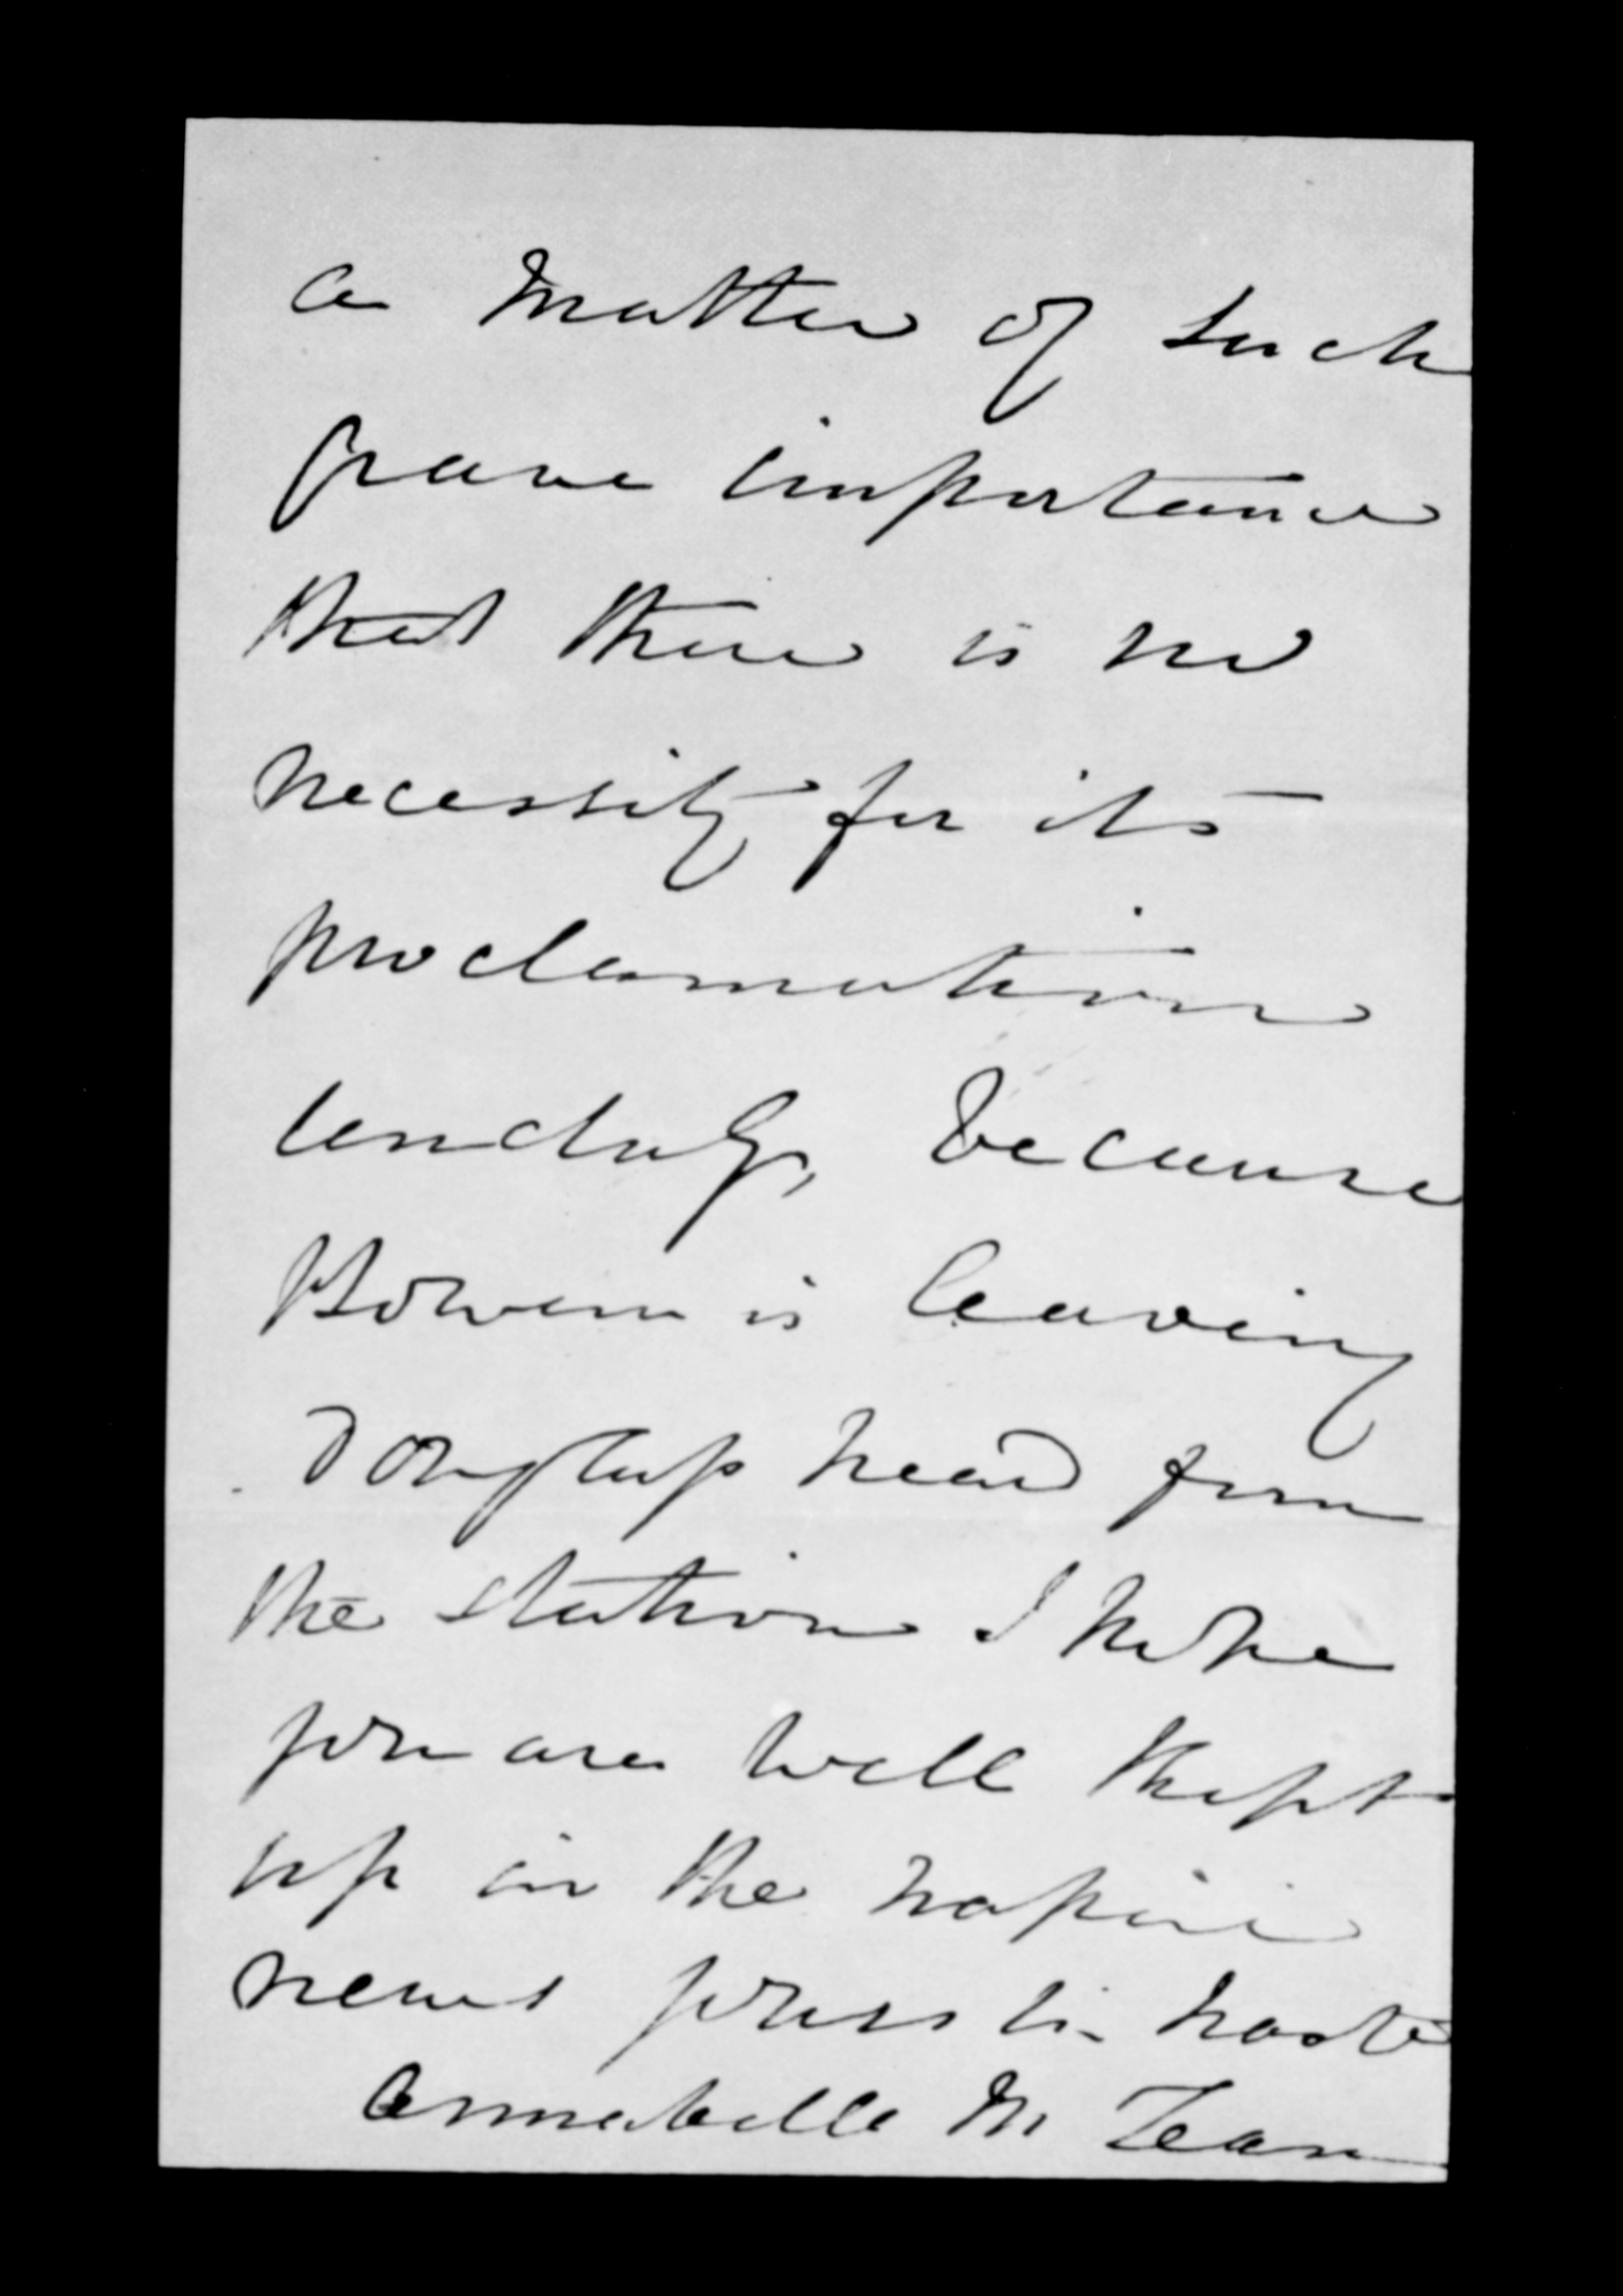 a matter of such
grave importance
that there is no
necessity for its
proclamation
unduly, because
Bowen is leaving
Douglass heard from
the station I hope
you are well & kept
up in the napier
news yours in haste
Annabella McLean